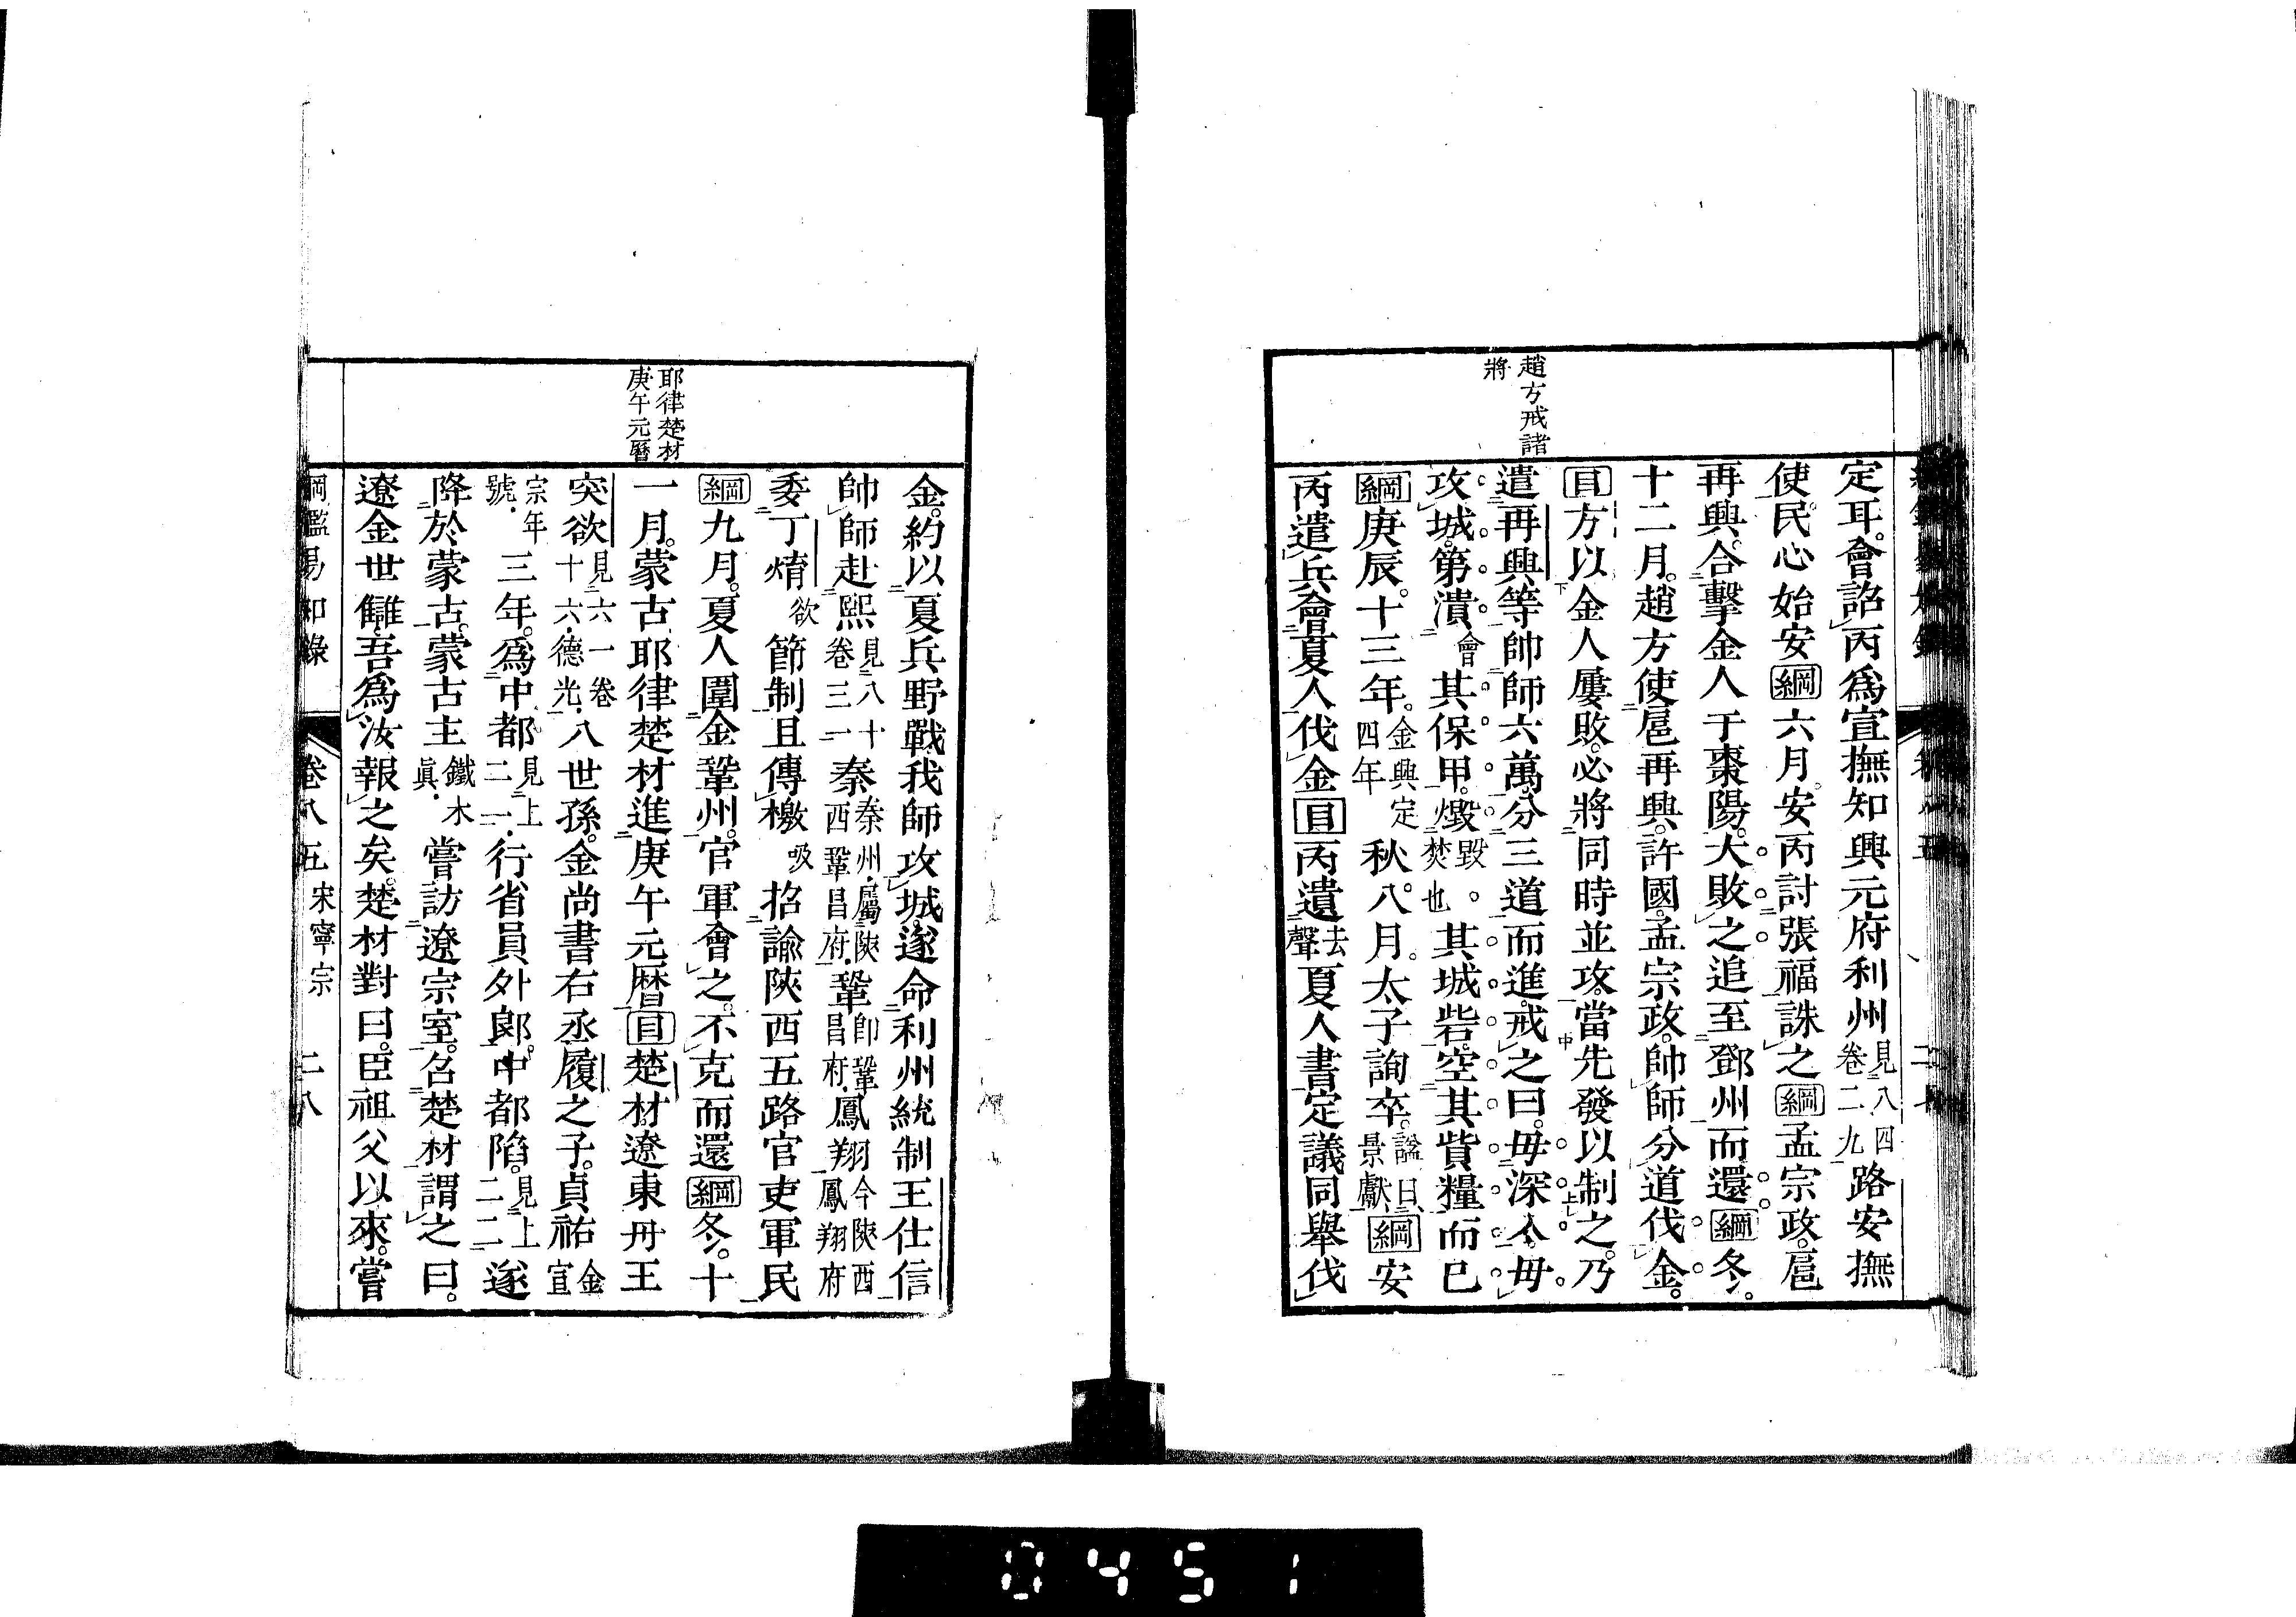 趙方戒諸
將
定耳。會詔丙爲宣撫知興元府利州見八四卷二九路安撫
使。民心始安綱六月。安丙討張福誅之綱孟宗政。扈
再興。合擊金人于棗陽。大敗之追至鄧州而還綱冬。
十二月。趙方使扈再興。許國。孟宗政。帥師分道伐金。
目方以金人屢敗。必將同時並攻。當先發以制之。乃
遣再興等帥師六萬。分三道而進。戒之曰。毋深入。毋
攻城。第潰會其保甲。燬毀。焚也其城砦。空其貲糧而已
綱庚辰。十三年。金興定四年秋。八月。太子詢卒。諡曰景獻綱安
丙遣兵會夏人伐金目丙遺去聲夏人書定議同舉伐
耶律楚材
庚午元曆
金。約以夏兵野戰。我師攻城。遂命利州統制王仕信
帥師赴熙見八十卷三一秦秦州。屬陝西鞏昌府。鞏卽鞏昌府。鳳翔今陝西鳳翔府
委丁焴欲節制且傳檄吸招諭陝西五路官吏軍民
綱九月。夏人圍金鞏州。官軍會之。不克而還綱冬。十
一月。蒙古耶律楚材進庚午元曆目楚材。遼東丹王
突欲見六一卷十六。德光。八世孫。金尚書右丞履之子。貞祐金宣
宗年號。三年。爲中都見上二一。行省員外郞。中都陷。見上二二遂
降於蒙古。蒙古主鐵木眞。嘗訪遼宗室。召楚材謂之曰。
遼金世讎。吾爲汝報之矣。楚材對曰。臣祖父以來。嘗
綱鑑易知錄 卷八五 宋寧宗 二八
0451